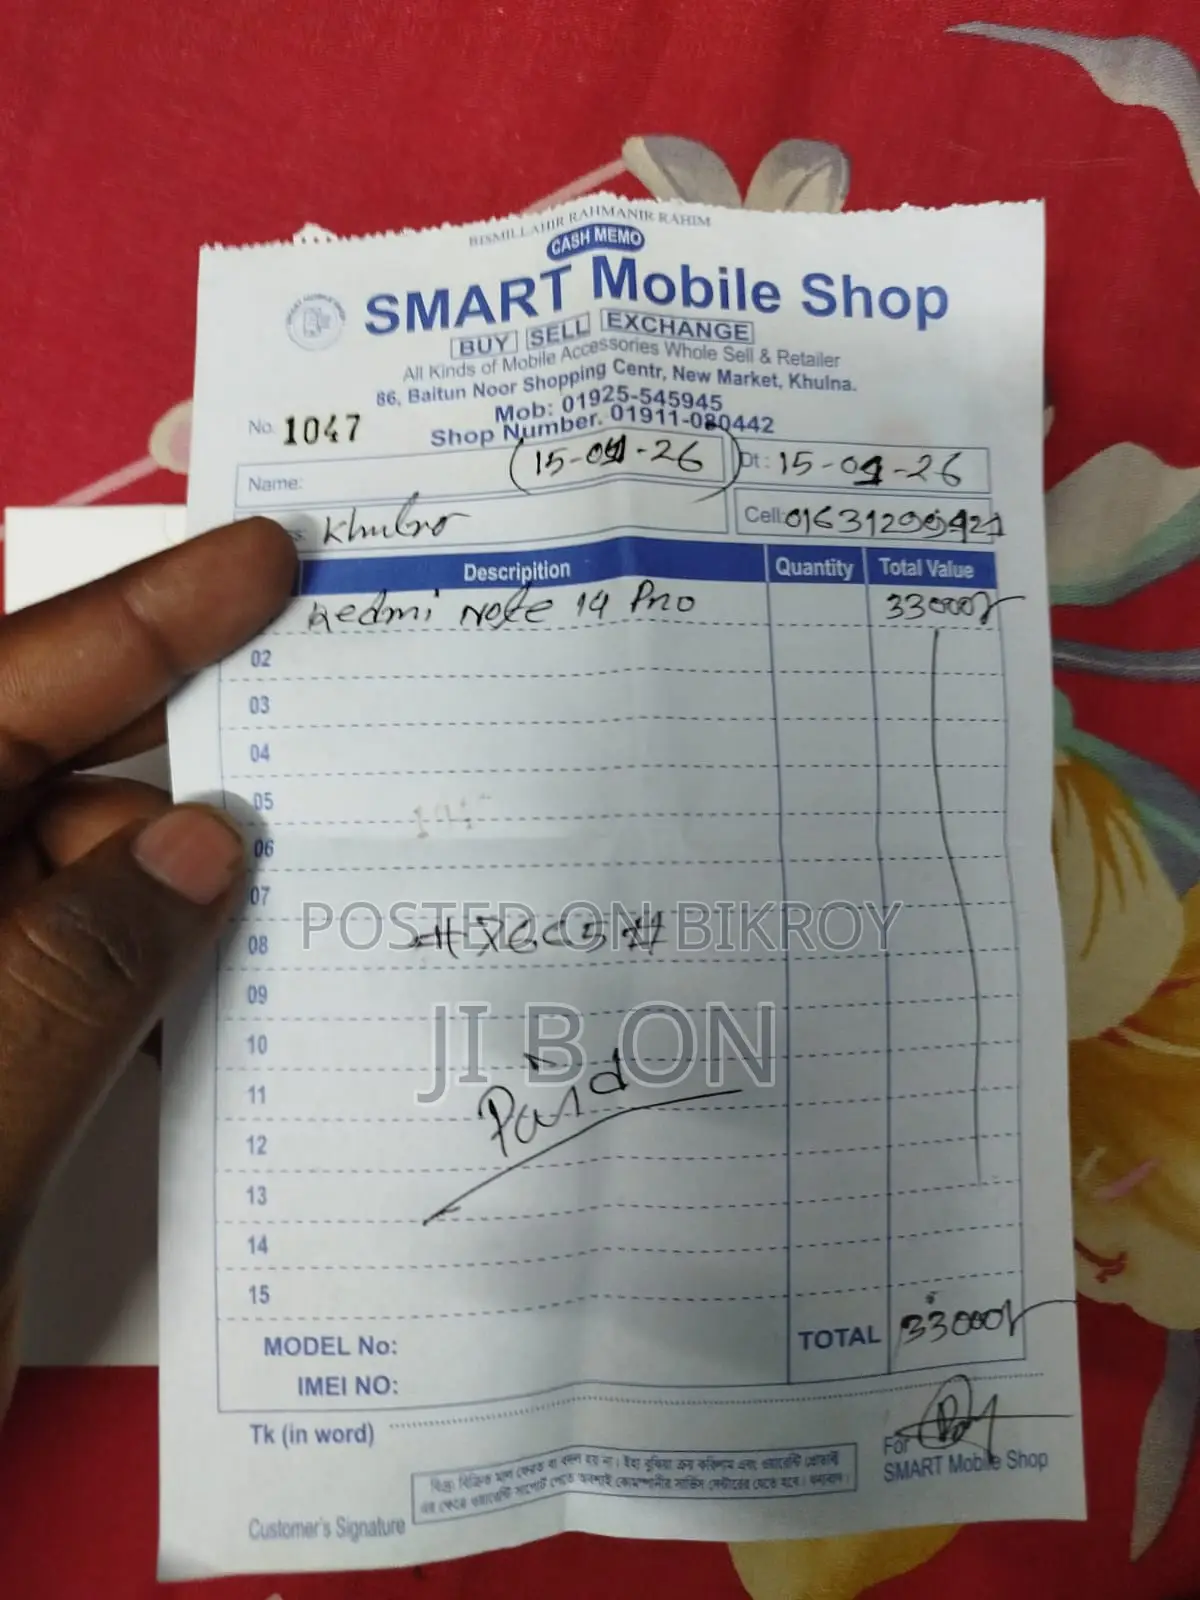 BISMILLAHIR RAHMANIR RAHIM
CASH MEMO
SMART Mobile Shop
BUY SELL EXCHANGE
All Kinds of Mobile Accessories Whole Sell & Retailer
86, Baitun Noor Shopping Centr, New Market, Khulna.
Mob: 01925-545945
Shop Number. 01911-080442
No. 1047
Name: (15-01-26) Dt: 15-01-26
Khulna Cell:
Descripition Quantity Total Value
Redmi Note 14 Pro 33000/-
02
03
04
05
06
07
08
POSTED ON BIKROY
09
JIBON
10
11
Paid
12
13
14
15
MODEL No: TOTAL 33000/-
IMEI NO:
Tk (in word)
For
SMART Mobile Shop
বিঃদ্রঃ বিক্রিত মাল ফেরত বা বদল হয় না। ইহা বুঝিয়া ক্রয় করিলাম এবং ওয়ারেন্টি
এর ক্ষেত্রে ওয়ারেন্টি সাপোর্ট পেতে অবশ্যই কোম্পানীর সার্ভিস সেন্টারের যেতে হবে। ধন্যবাদ।
Customer's Signature